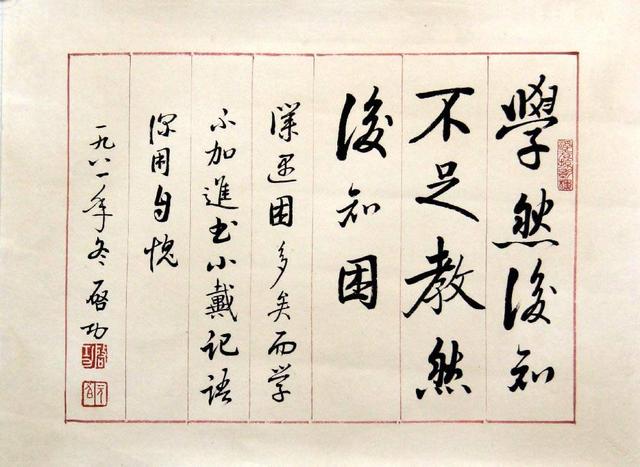 學然後知
不足教然
後知困
僕遇困多矣而学
不加進书小戴记语
深用自愧
一九八一年冬启功